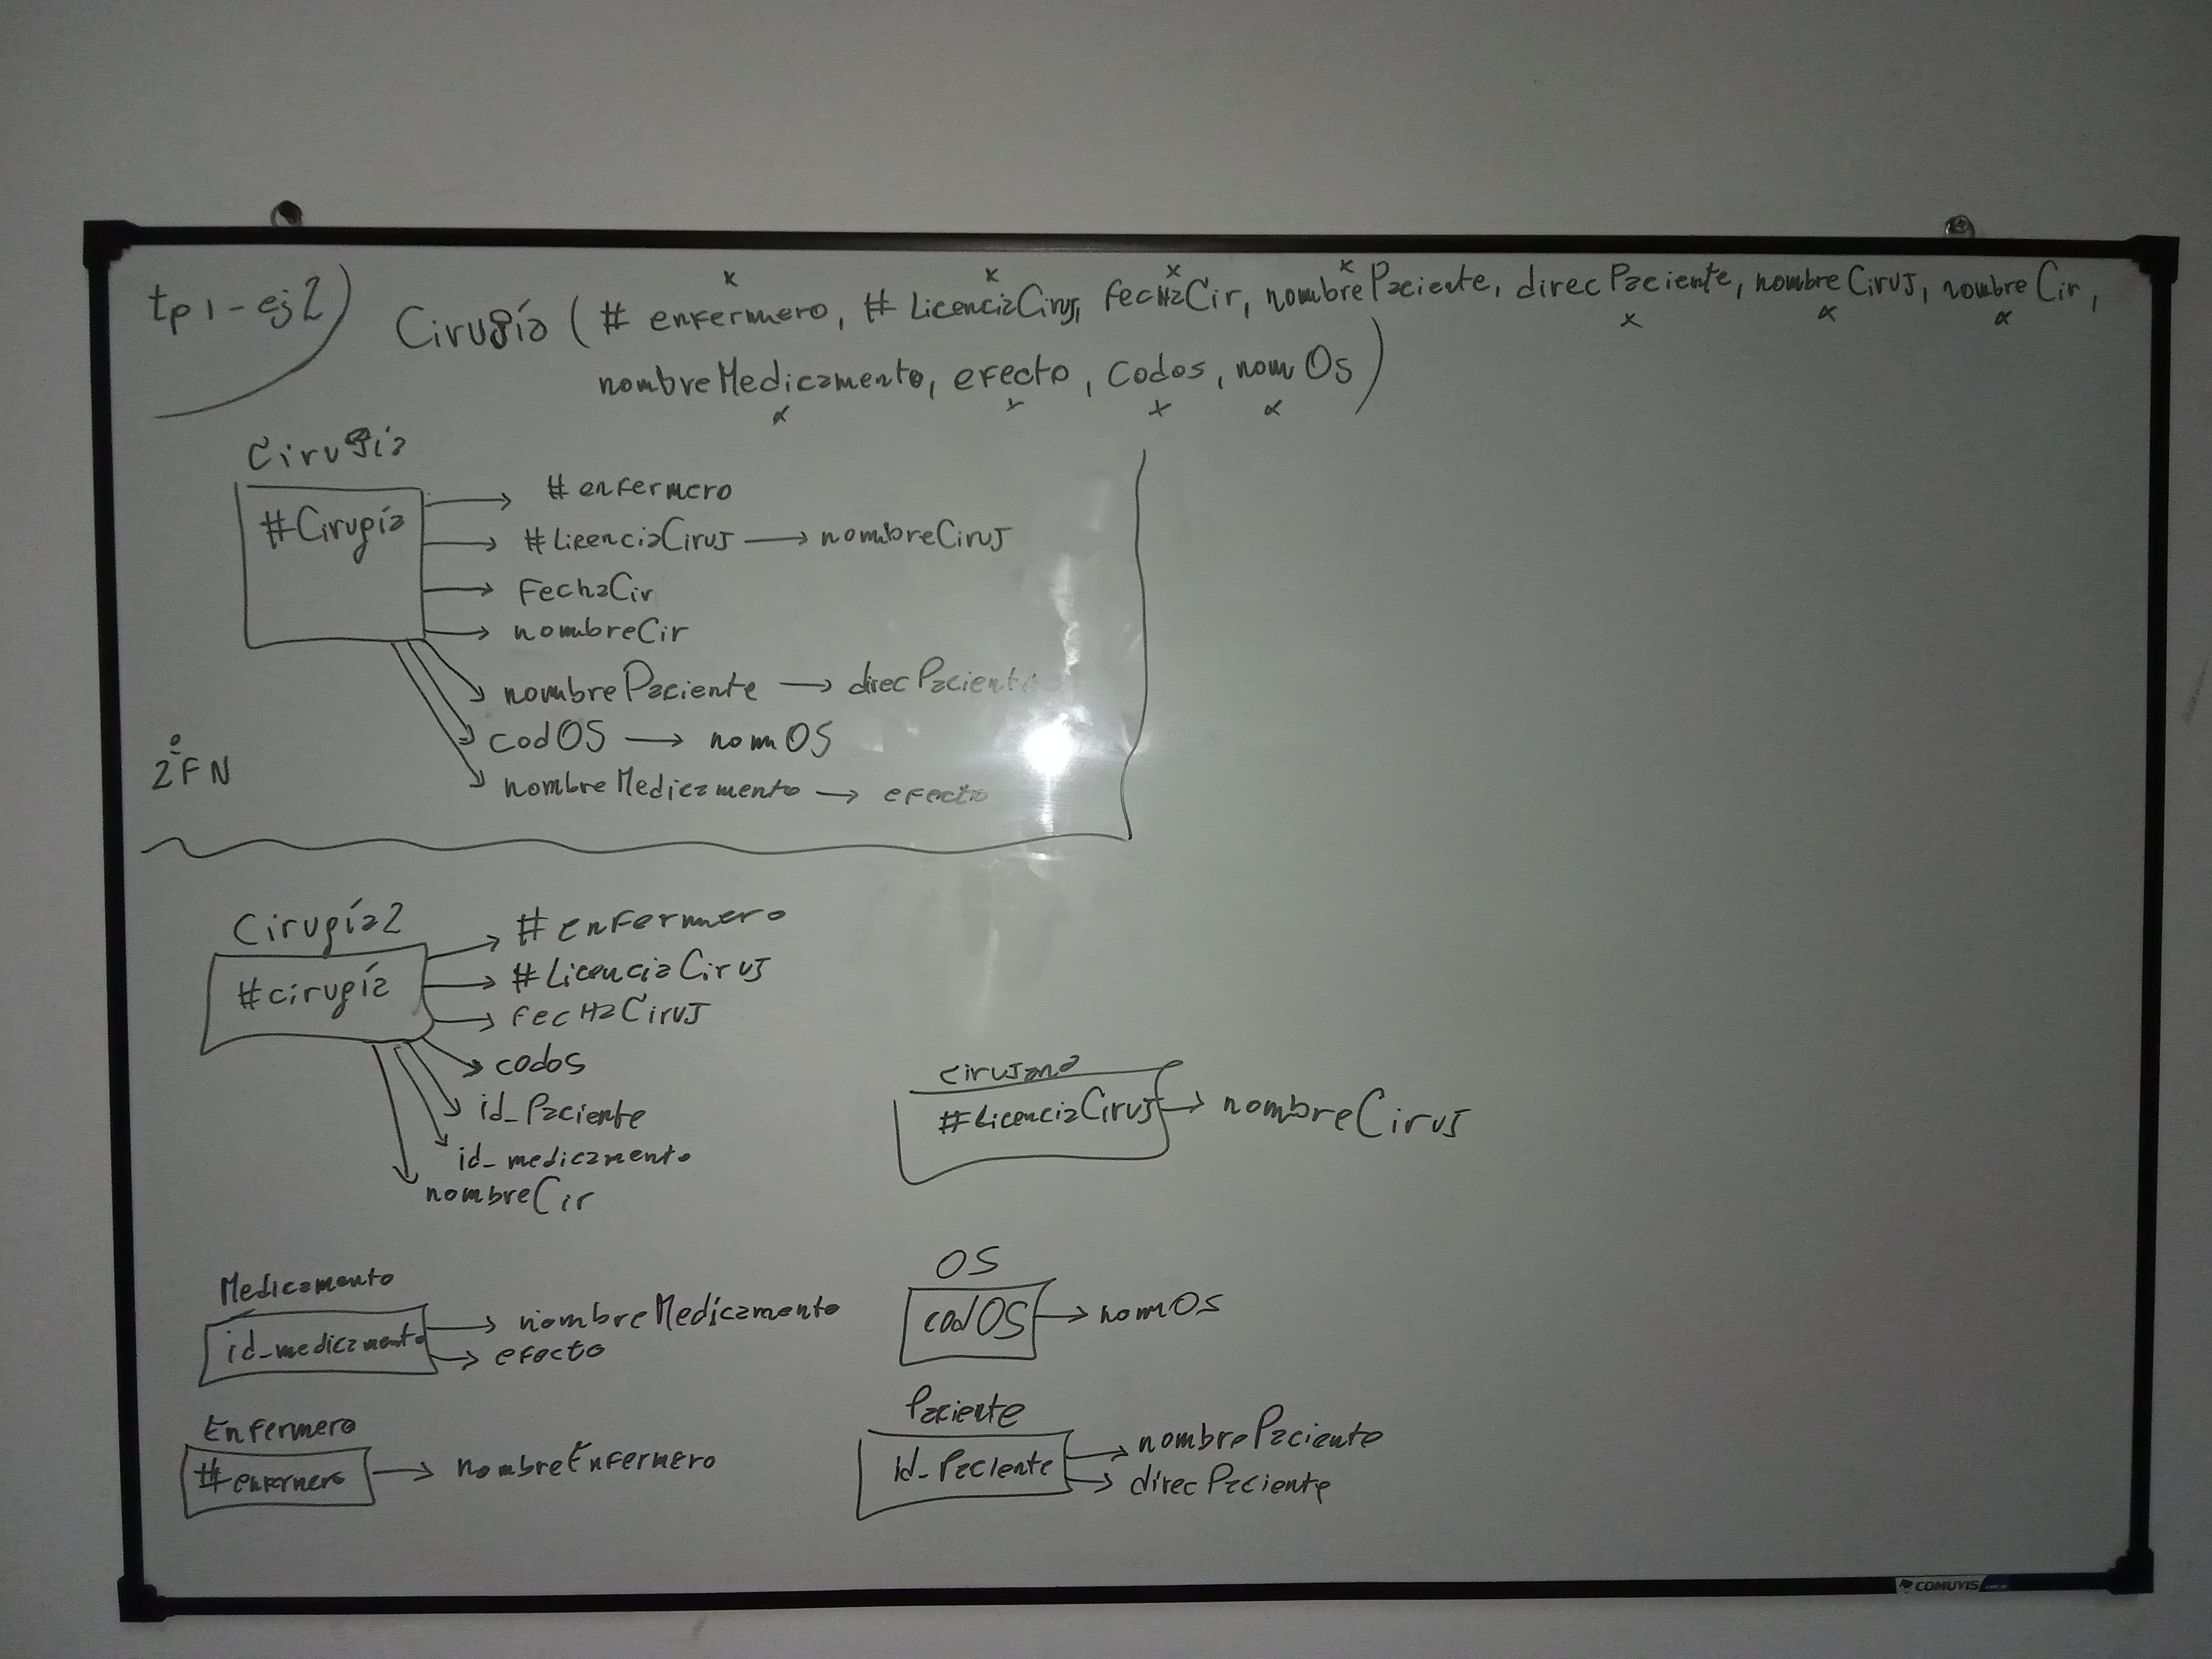 tp1-ej2)
Cirugía ( # enfermero, # LicenciaCiruj, fechaCir, nombrePaciente, direcPaciente, nombreCiruj, nombreCir,
nombreMedicamento, efecto, codos, nomOs)
Cirugía
#Cirugía
# enfermero
#LicenciaCiruj → nombreCiruj
FechaCir
nombreCir
nombrePaciente → direcPaciente
codOS → nomOS
nombreMedicamento → efecto
2ºFN
Cirugía2
#cirugía
# enfermero
#LicenciaCiruj
fecHaCiruj
codos
id_Paciente
id_medicamento
nombreCir
cirujano
#LicenciaCiruj → nombreCiruj
Medicamento
id_medicamento → nombreMedicamento
→ efecto
OS
codOS → nomOs
Enfermero
#enfermero → nombreEnfermero
Paciente
id_Paciente → nombrePaciente
→ direcPaciente
COMUVIS